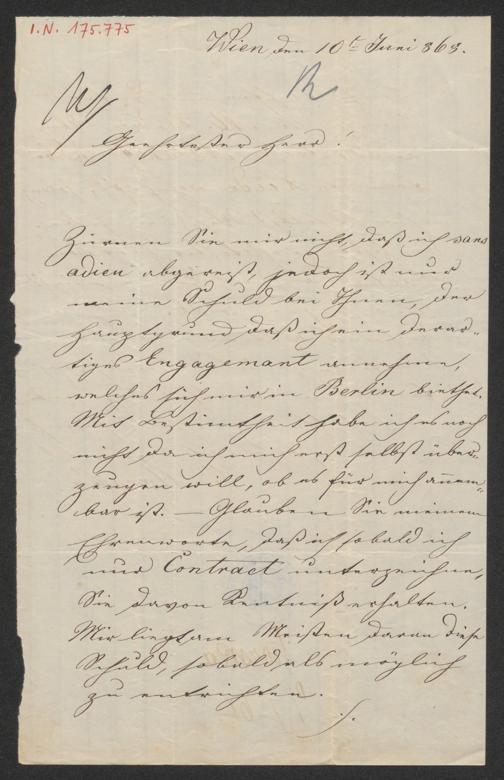 I.N. 175.775
Wien den 10t Juni 863.
Geehrtester Herr!
Zürnen Sie mir nicht, daß ich sans
adieu abgereist, jedoch ist nur
meine Schuld bei Ihnen, der
Hauptgrund daß ich ein derar-
tiges Engagemant annehme,
welches sich mir in Berlin biethet.
Mit Bestimtheit habe ich es noch
nicht da ich mich erst selbst über-
zeugen will, ob es für mich annem-
bar ist. — Glauben Sie meinem
Ehrenworte, daß ich sobald ich
nur Contract unterzeichne,
Sie davon Kentniß erhalten.
Mir liegt am Meisten daran diese
Schuld, sobald als möglich
zu entrichten.
./.